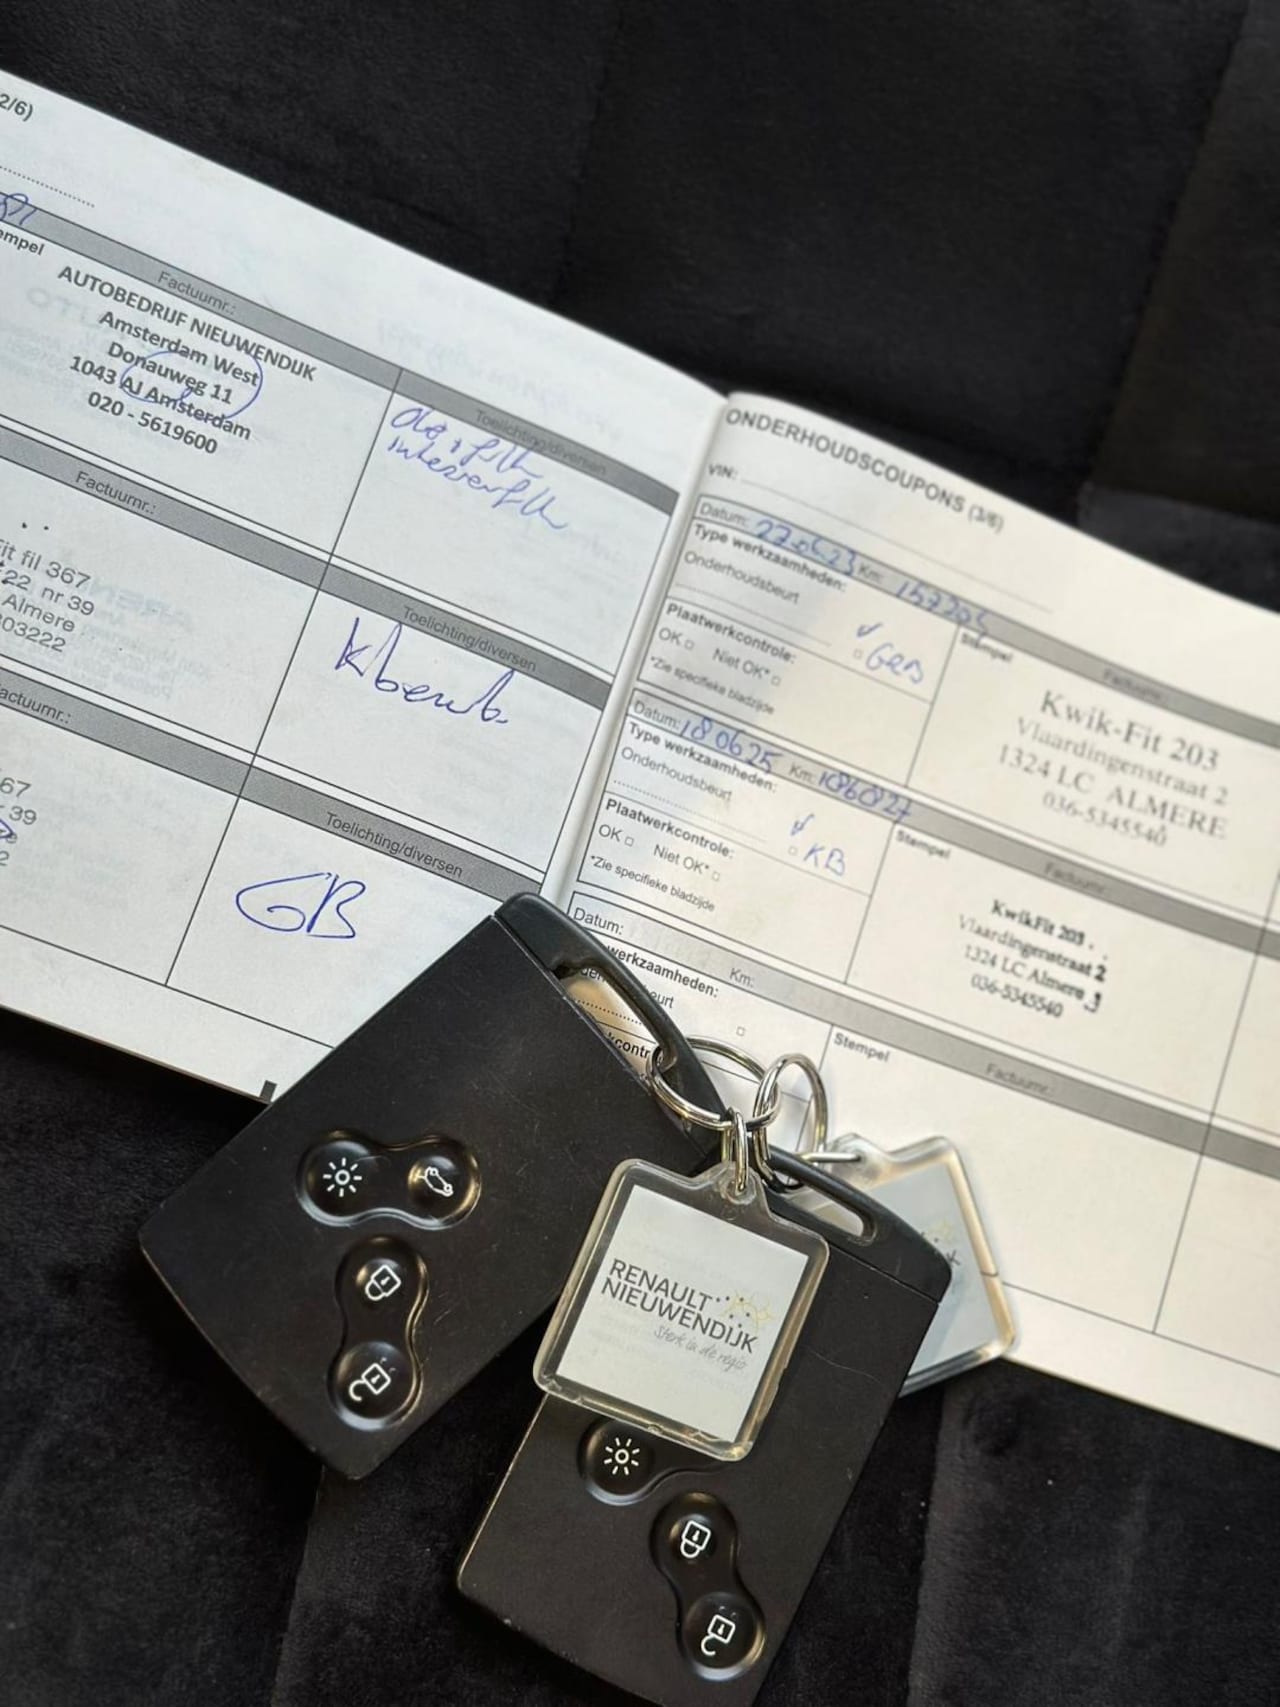 2/6)
empel
Factuurnr.:
AUTOBEDRIJF NIEUWENDIJK
Amsterdam West
Donauweg 11
1043 AJ Amsterdam
020 - 5619600
Toelichting/diversen
Factuurnr.:
it fil 367
22 nr 39
Almere
03222
Toelichting/diversen
Kbeurt
actuurnr.:
67
39
2
Toelichting/diversen
GB
ONDERHOUDSCOUPONS (3/6)
VIN:
Datum: Km:
Type werkzaamheden:
Onderhoudsbeurt
GRB
Plaatwerkcontrole:
OK Niet OK*
*Zie specifieke bladzijde
Stempel
Factuurnr.:
Kwik-Fit 203
Vlaardingenstraat 2
1324 LC ALMERE
036-5345540
Datum: 180625 Km: 186827
Type werkzaamheden:
Onderhoudsbeurt
KB
Plaatwerkcontrole:
OK Niet OK*
*Zie specifieke bladzijde
Stempel
Factuurnr.:
KwikFit 203
Vlaardingenstraat 2
1324 LC Almere
036-5345540
Datum:
Km:
werkzaamheden:
eurt
kcontr
Stempel
Factuurnr.:
RENAULT
NIEUWENDIJK
Sterk in de regio